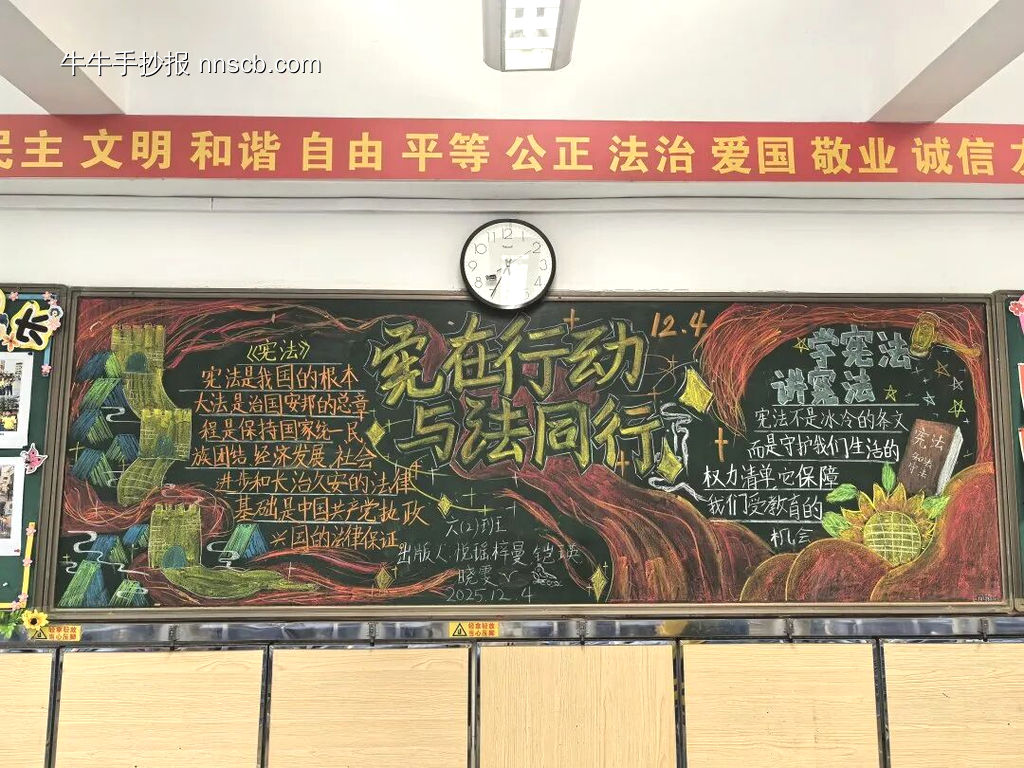 牛牛手抄报 nnscb.com
民主 文明 和谐 自由 平等 公正 法治 爱国 敬业 诚信 友
12.4
宪在行动
与法同行
《宪法》
宪法是我国的根本
大法是治国安邦的总章
程是保持国家统一民
族团结经济发展社会
进步和长治久安的法律
基础是中国共产党执政
兴国的法律保证
六(2)班
出版人:悦瑶梓曼铠瑛
晓雯
2025.12.4
学宪法
讲宪法
宪法不是冰冷的条文
而是守护我们生活的
权力清单它保障
我们受教育的
机会
宪法
轻拿轻放
当心压脚
轻拿轻放
当心压脚